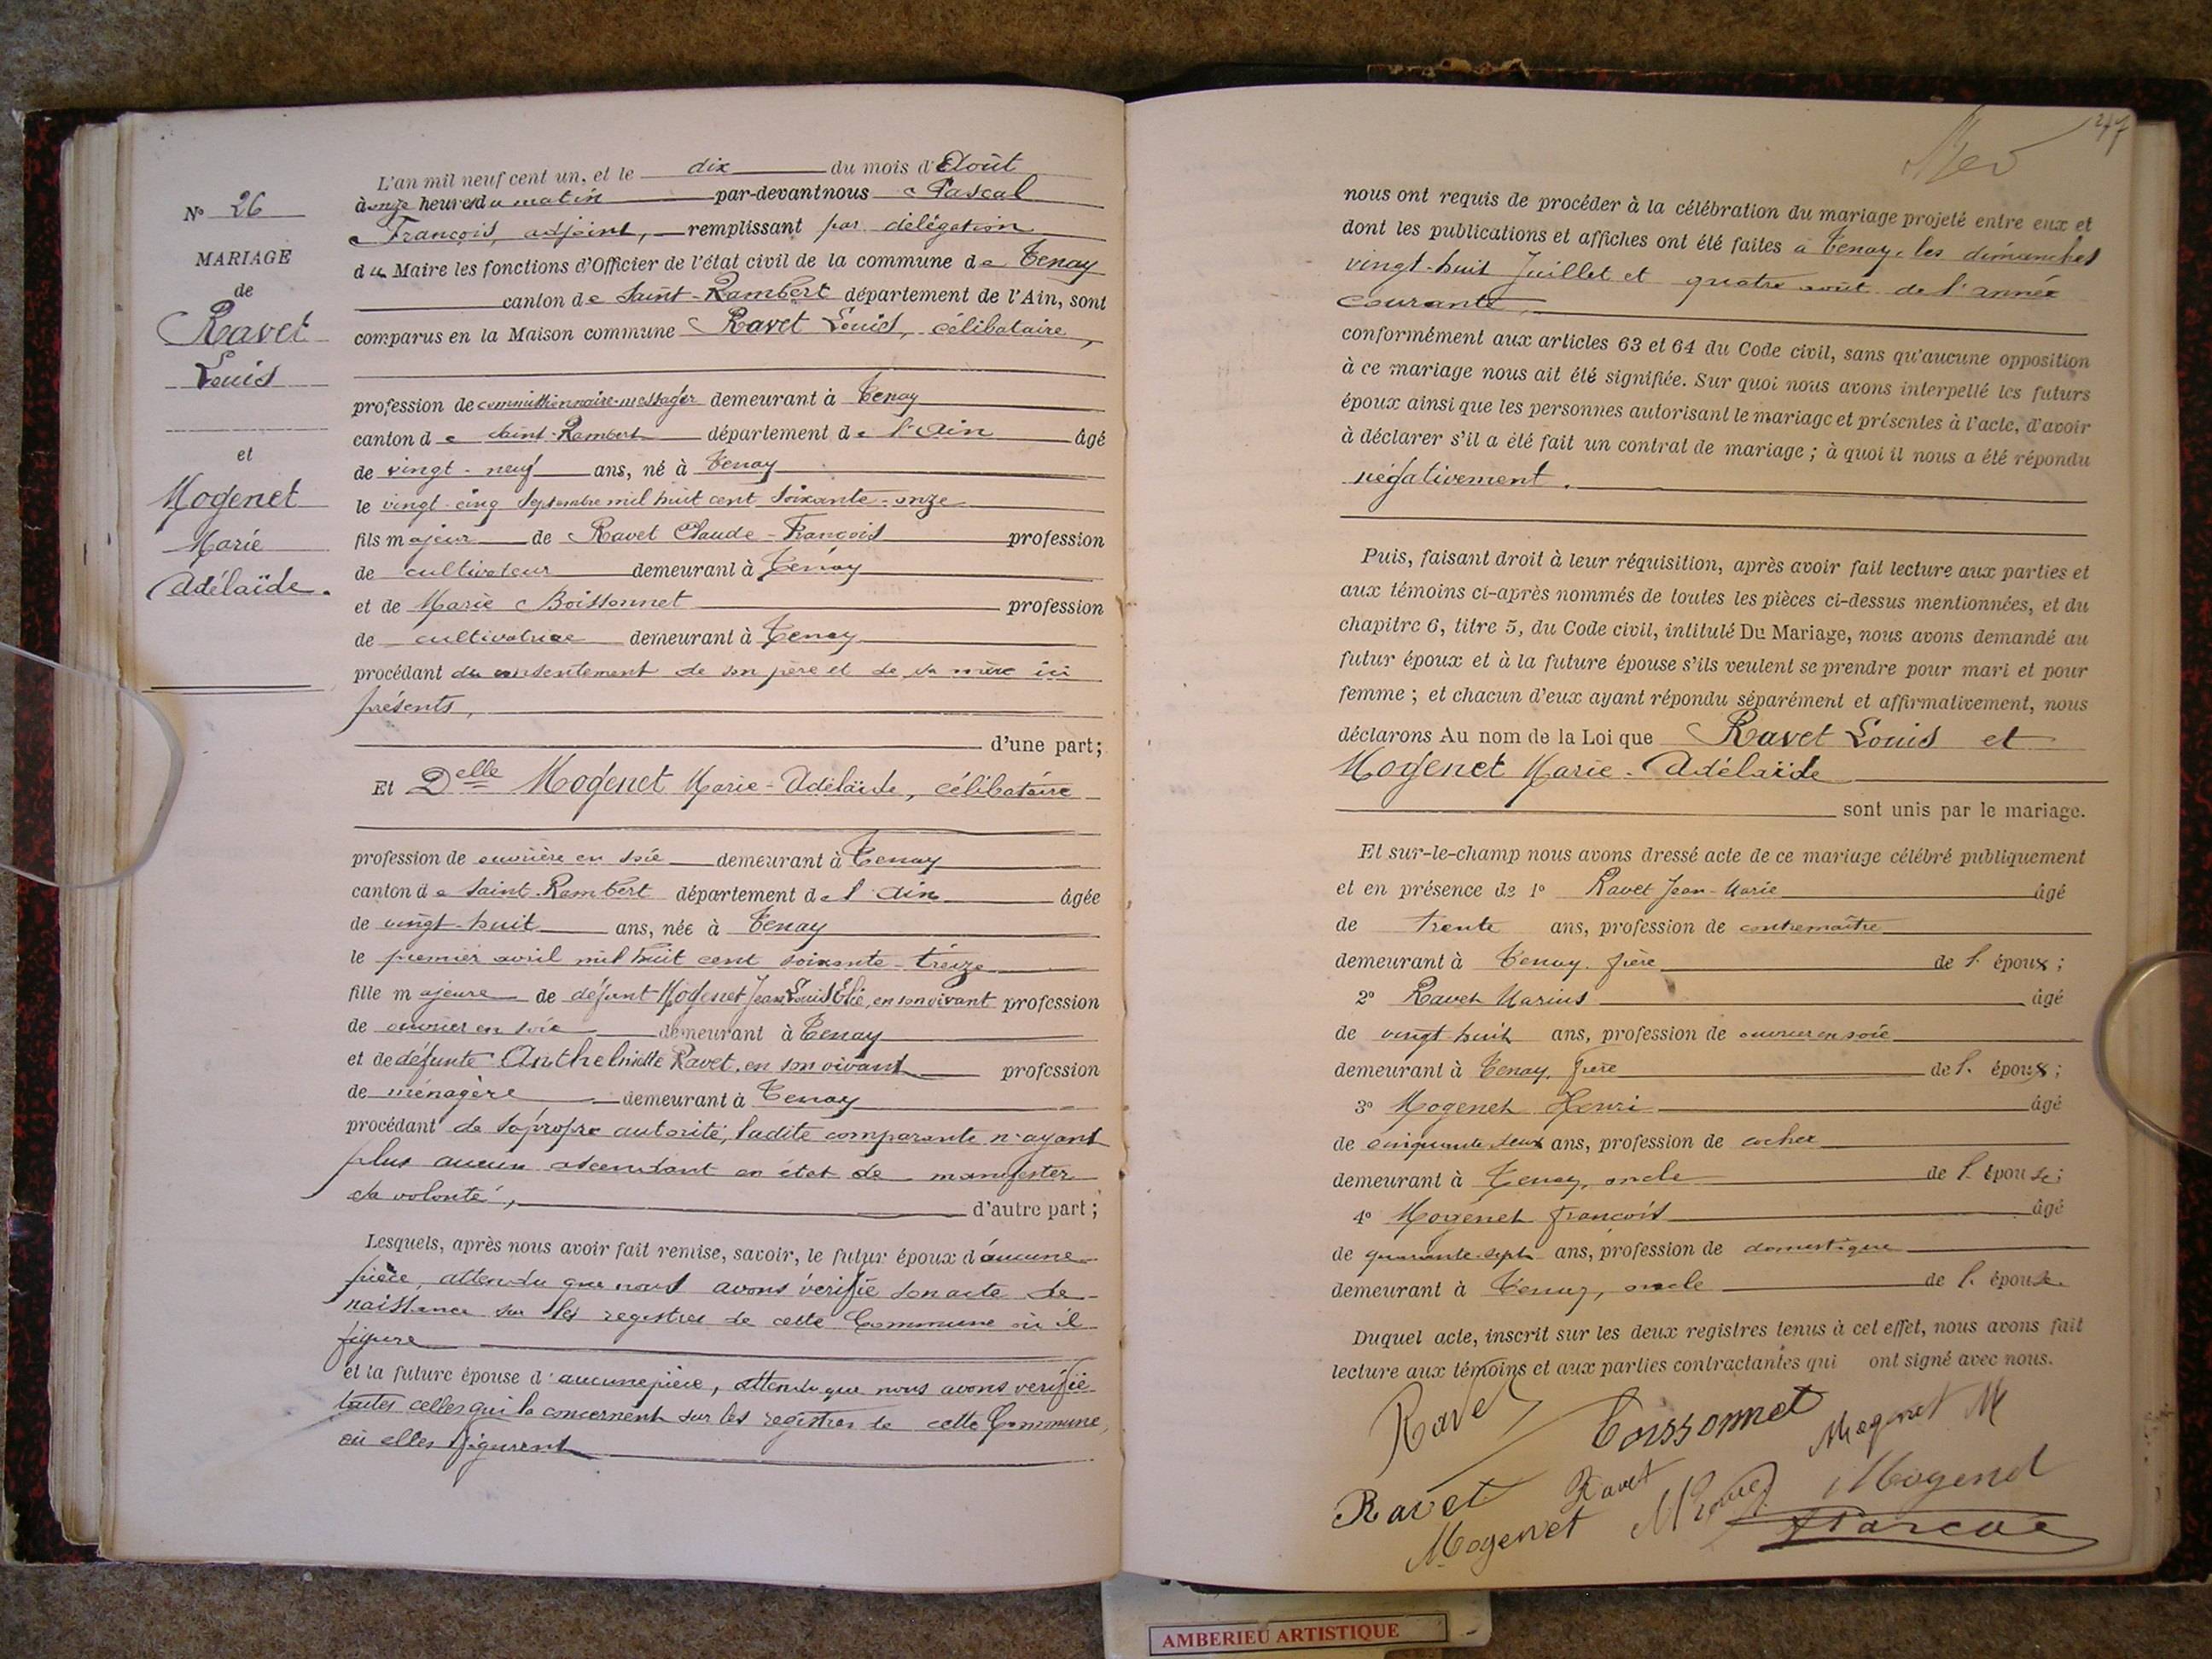 N° 26
MARIAGE
de
Ravet
Louis
et
Mogenet
Marie
Adélaïde.
L'an mil neuf cent un, et le dix du mois d'Août
à onze heures du matin par-devant nous Pascal
François, adjoint, remplissant par délégation
du Maire les fonctions d'Officier de l'état civil de la commune de Tenay
canton de Saint-Rambert département de l'Ain, sont
comparus en la Maison commune Ravet Louis, célibataire,
profession de commissionnaire-messager demeurant à Tenay
canton de Saint-Rambert département de l'Ain âgé
de vingt-neuf ans, né à Tenay
le vingt-cinq Septembre mil huit cent soixante-onze
fils majeur de Ravet Claude-François profession
de cultivateur demeurant à Tenay
et de Marie Boissonnet profession
de cultivatrice demeurant à Tenay
procédant du consentement de son père et de sa mère ici
présents,
d'une part;
Et Delle Mogenet Marie-Adélaïde, célibataire
profession de ouvrière en soie demeurant à Tenay
canton de Saint-Rambert département de l'Ain âgée
de vingt-huit ans, née à Tenay
le premier avril mil huit cent soixante-treize
fille majeure de défunt Mogenet Jean Louis Elie, en son vivant profession
de ouvrier en soie demeurant à Tenay
et de défunte Anthelmette Ravet, en son vivant profession
de ménagère demeurant à Tenay
procédant de sa propre autorité, ladite comparante n'ayant
plus aucun ascendant en état de manifester
sa volonté, d'autre part;
Lesquels, après nous avoir fait remise, savoir, le futur époux d'aucune
pièce, attendu que nous avons vérifié son acte de
naissance sur les registres de cette Commune où il
figure
et la future épouse d'aucune pièce, attendu que nous avons vérifié
toutes celles qui la concernent sur les registres de cette Commune,
où elles figurent
247
nous ont requis de procéder à la célébration du mariage projeté entre eux et
dont les publications et affiches ont été faites à Tenay, les dimanches
vingt-huit Juillet et quatre août de l'année
courante,
conformément aux articles 63 et 64 du Code civil, sans qu'aucune opposition
à ce mariage nous ait été signifiée. Sur quoi nous avons interpellé les futurs
époux ainsi que les personnes autorisant le mariage et présentes à l'acte, d'avoir
à déclarer s'il a été fait un contrat de mariage ; à quoi il nous a été répondu
négativement.
Puis, faisant droit à leur réquisition, après avoir fait lecture aux parties et
aux témoins ci-après nommés de toutes les pièces ci-dessus mentionnées, et du
chapitre 6, titre 5, du Code civil, intitulé Du Mariage, nous avons demandé au
futur époux et à la future épouse s'ils veulent se prendre pour mari et pour
femme ; et chacun d'eux ayant répondu séparément et affirmativement, nous
déclarons Au nom de la Loi que Ravet Louis et
Mogenet Marie-Adélaïde
sont unis par le mariage.
Et sur-le-champ nous avons dressé acte de ce mariage célébré publiquement
et en présence de 1° Ravet Jean-Marie âgé
de trente ans, profession de contremaître
demeurant à Tenay, frère de l'époux ;
2° Ravet Marius âgé
de vingt-huit ans, profession de ouvrier en soie
demeurant à Tenay, frère de l'époux ;
3° Mogenet Henri âgé
de cinquante-deux ans, profession de cocher
demeurant à Tenay, oncle de l'épouse ;
4° Mogenet François âgé
de quarante-sept ans, profession de domestique
demeurant à Tenay, oncle de l'épouse.
Duquel acte, inscrit sur les deux registres tenus à cet effet, nous avons fait
lecture aux témoins et aux parties contractantes qui ont signé avec nous.
Ravet
Boissonnet
Mogenet M
Ravet
Ravet
Mogenet
Mogenet
Pascal
AMBERIEU ARTISTIQUE